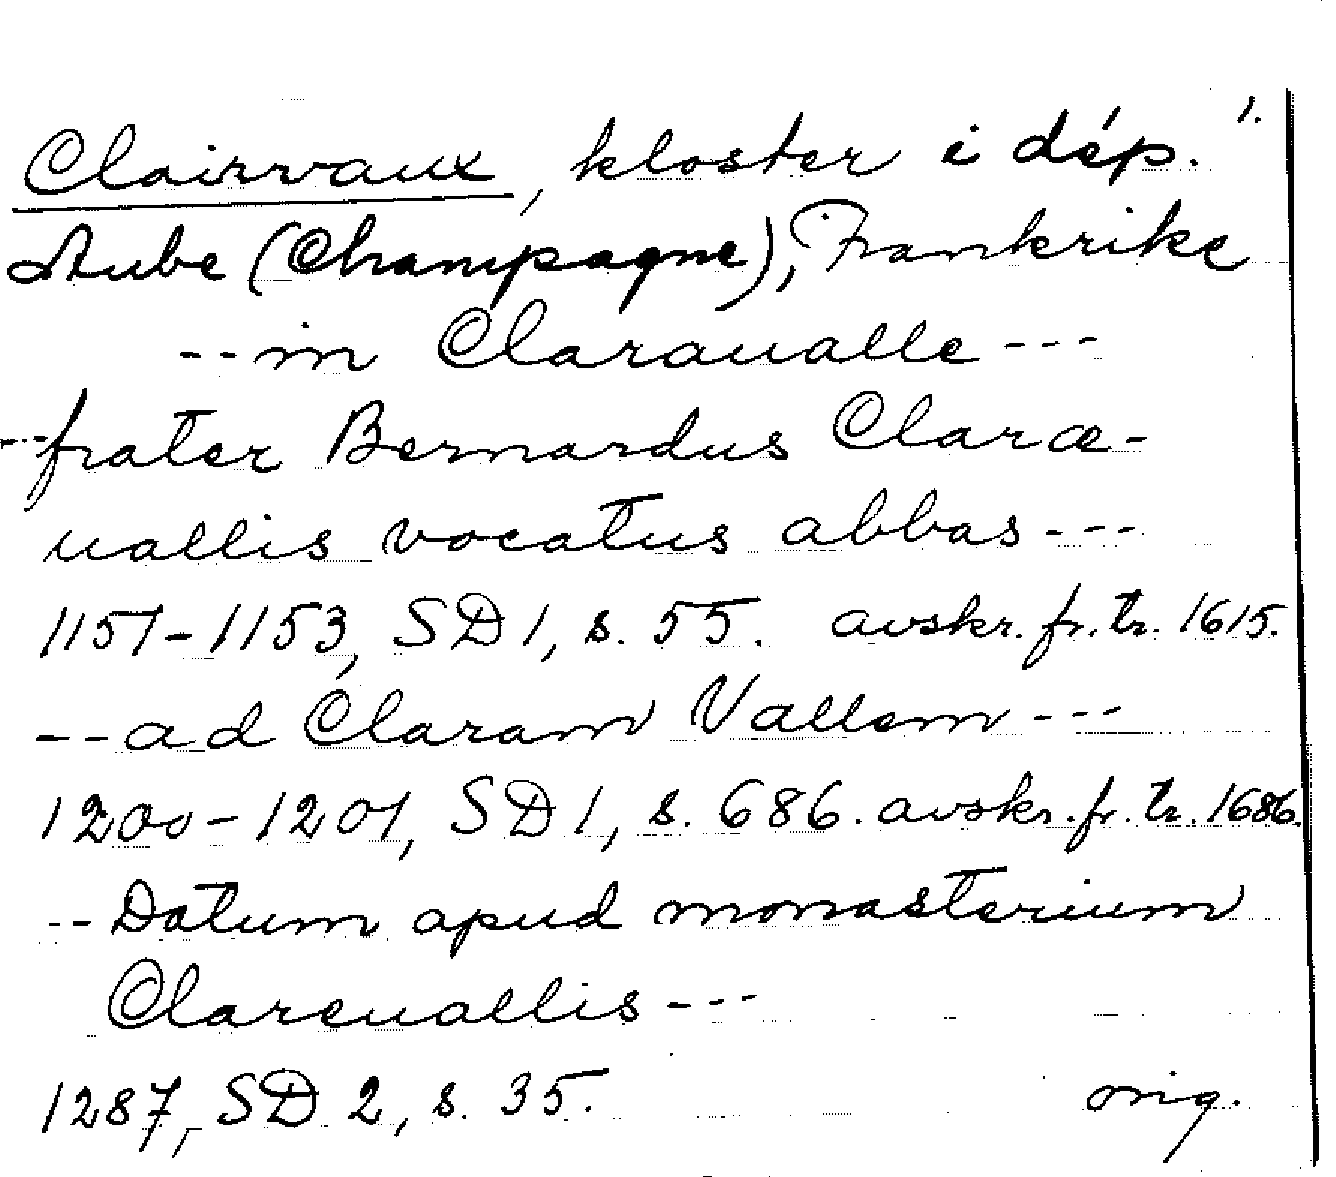 1.
Clairvaux, kloster i dép.
Aube (Champagne), Frankrike
-- in Claraualle ---
--- frater Bernardus Claræ-
uallis vocatus abbas ---
1151-1153, SD 1, s. 55. avskr. fr. tr. 1615.
-- ad Claram Vallem ---
1200-1201, SD 1, s. 686. avskr. fr. tr. 1686.
-- Datum apud monasterium
Clareuallis ---
1287, SD 2, s. 35. orig.